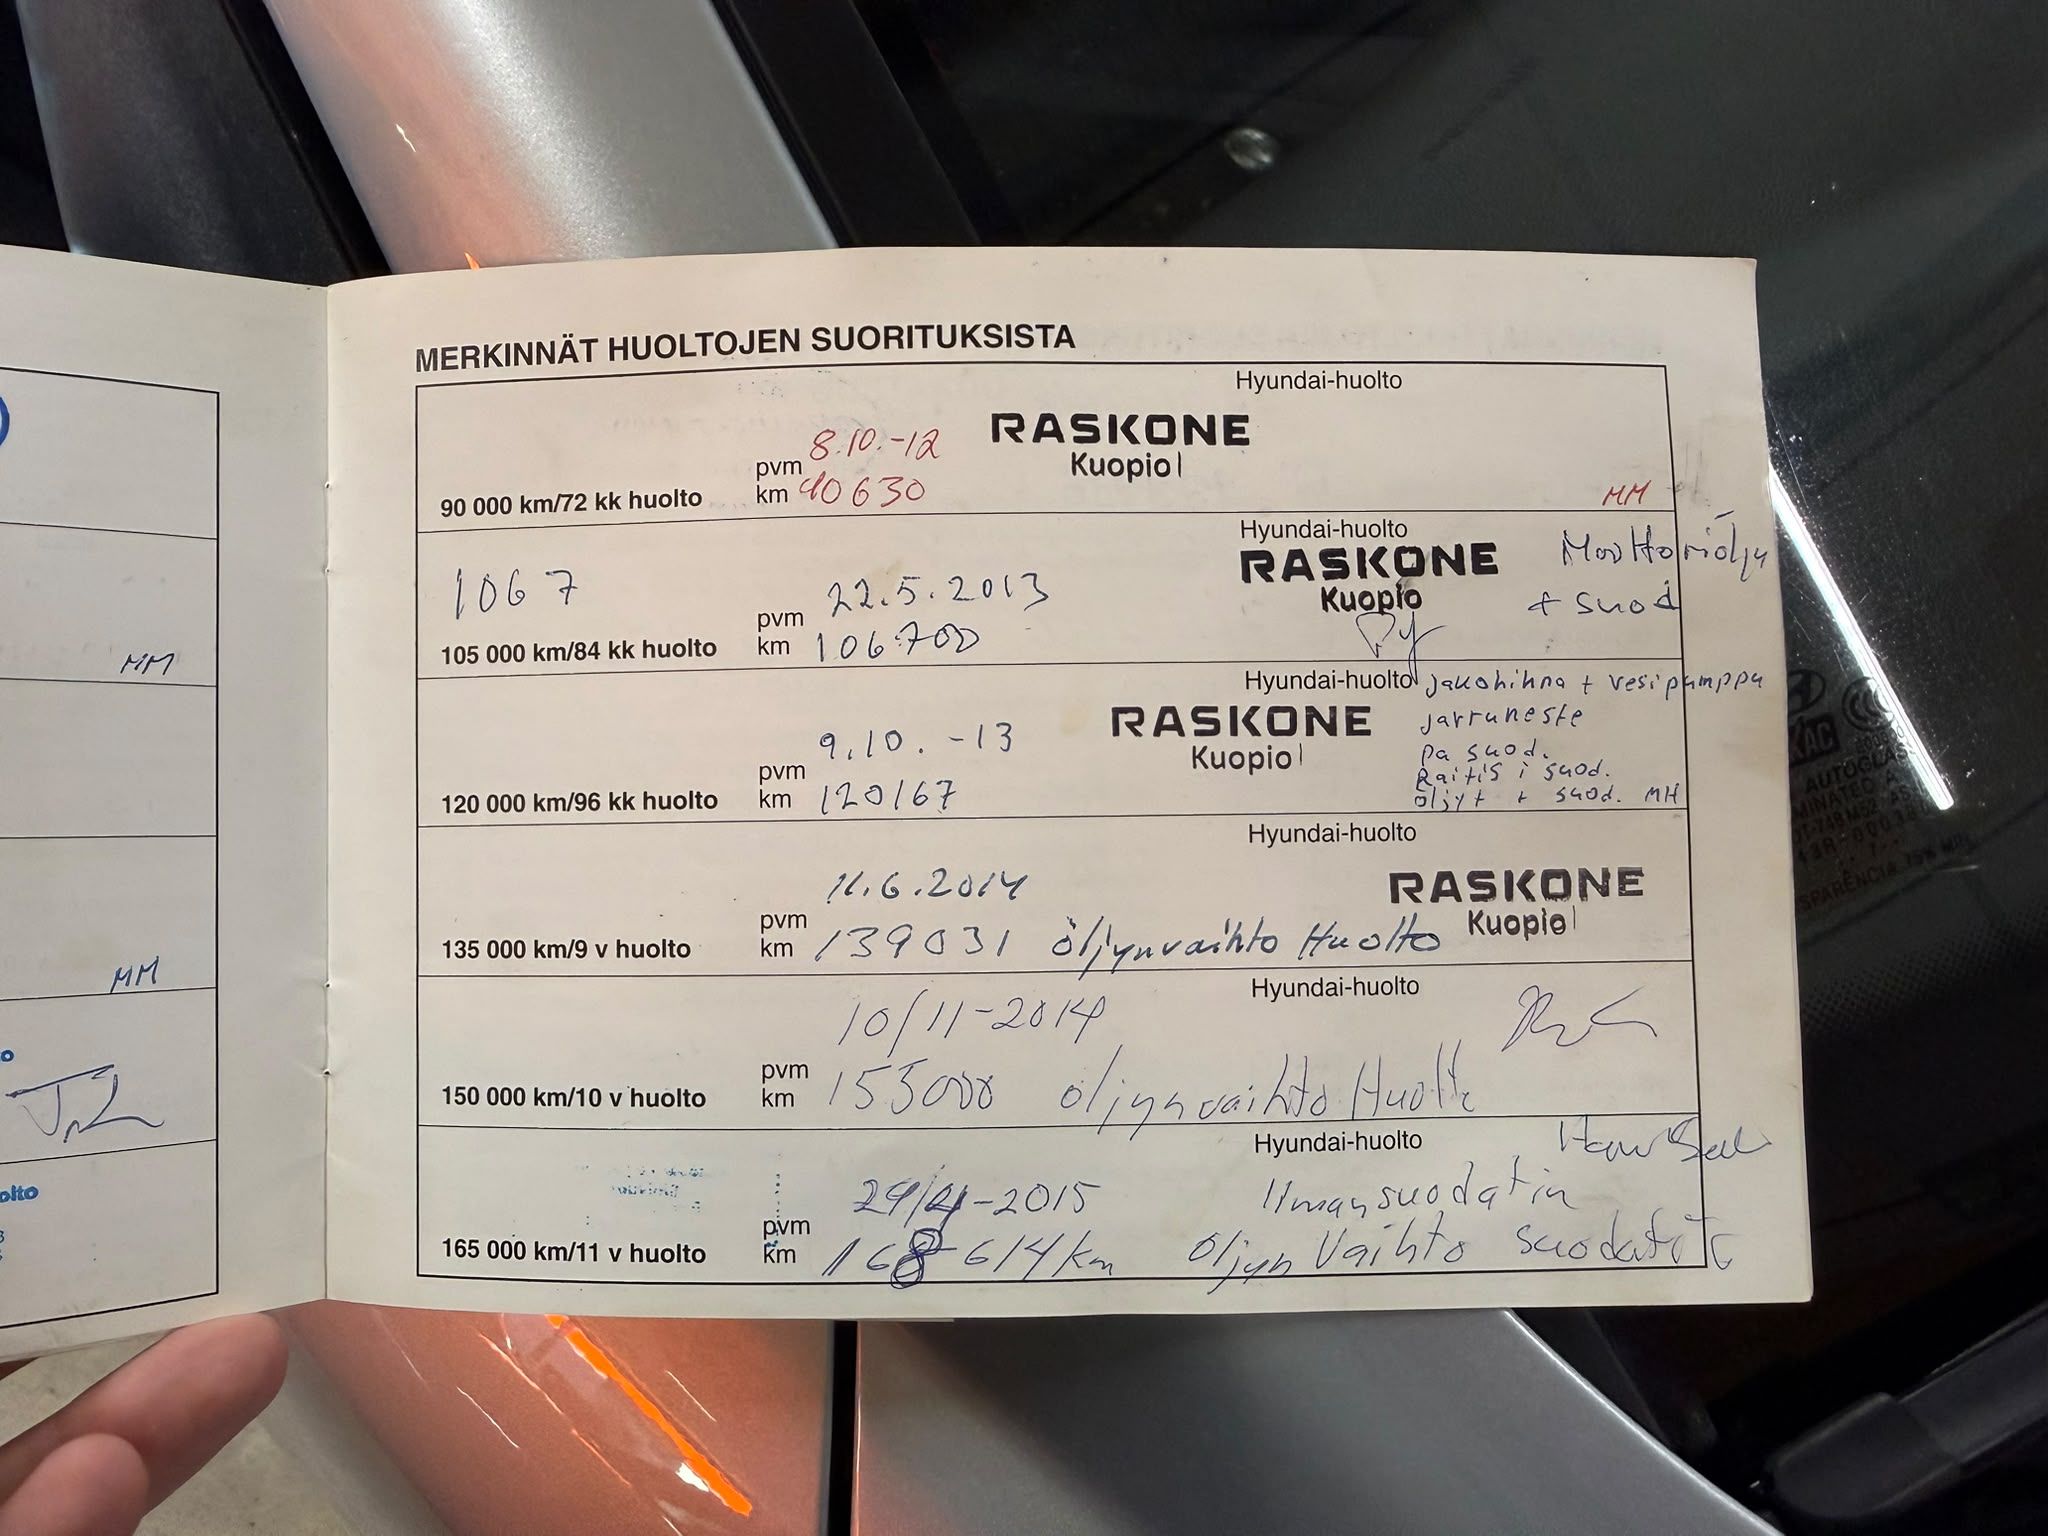 MERKINNÄT HUOLTOJEN SUORITUKSISTA
Hyundai-huolto
RASKONE
Kuopio
90 000 km/72 kk huolto
pvm 8.10.-12
km 90630
MM
Hyundai-huolto
RASKONE
Kuopio
Moottoriöljy
+ suod
1067
105 000 km/84 kk huolto
pvm 22.5.2013
km 106700
Hyundai-huolto
RASKONE
Kuopio
jakohihna + vesipumppu
jarruneste
pa suod.
Raitis i suod.
öljyt + suod. MH
120 000 km/96 kk huolto
pvm 9.10.-13
km 120167
Hyundai-huolto
RASKONE
Kuopio
135 000 km/9 v huolto
pvm 11.6.2014
km 139031 öljynvaihto Huolto
Hyundai-huolto
150 000 km/10 v huolto
pvm 10/11-2014
km 155000 öljynvaihto Huolto
Hyundai-huolto
165 000 km/11 v huolto
pvm
km 168 614 km
Ilmansuodatin
öljyn Vaihto
MM
MM
olto